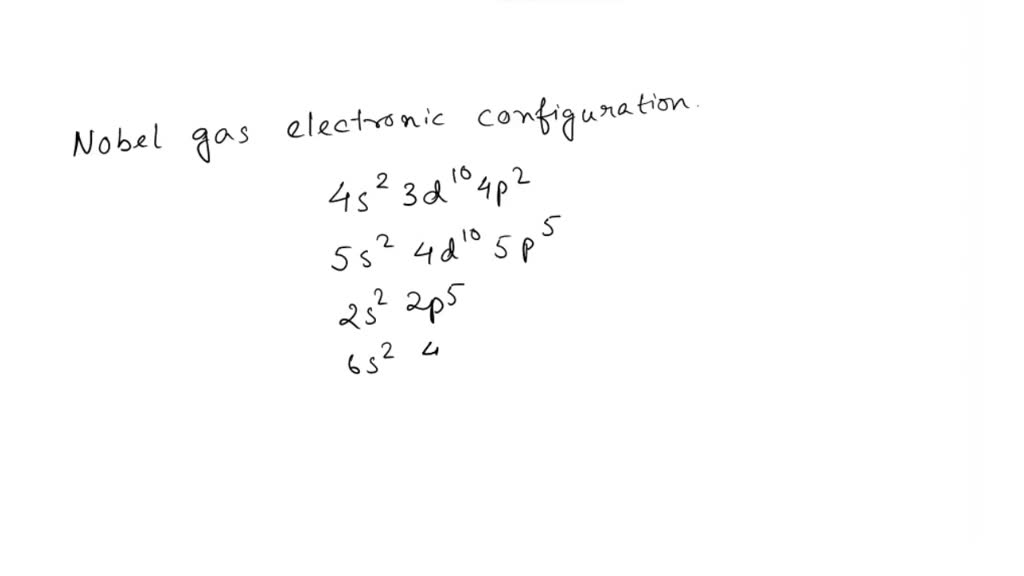 Nobel gas electronic configuration.
4s² 3d¹⁰ 4p²
5s² 4d¹⁰ 5p⁵
2s² 2p⁵
6s² 4